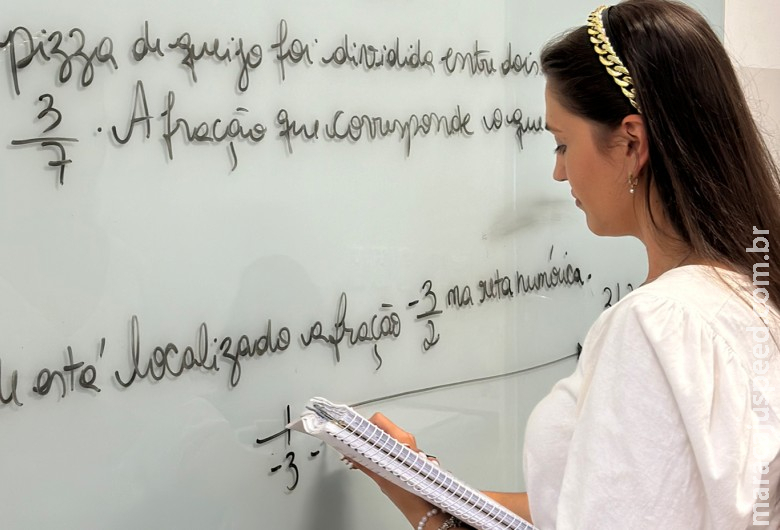 pizza de queijo foi dividida entre dois
3/7 . A fração que corresponde ao que
está localizado a fração -3/2 na reta numérica.
-3 -